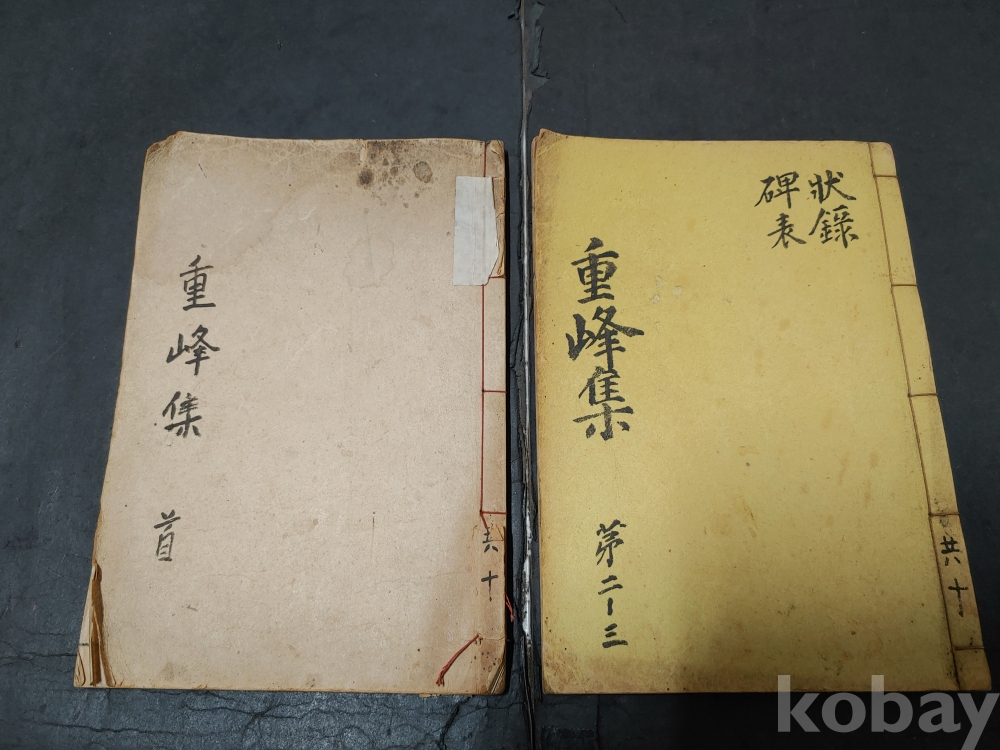 重峰集
首
共十
狀錄
碑表
重峰集
第二-三
共十
kobay